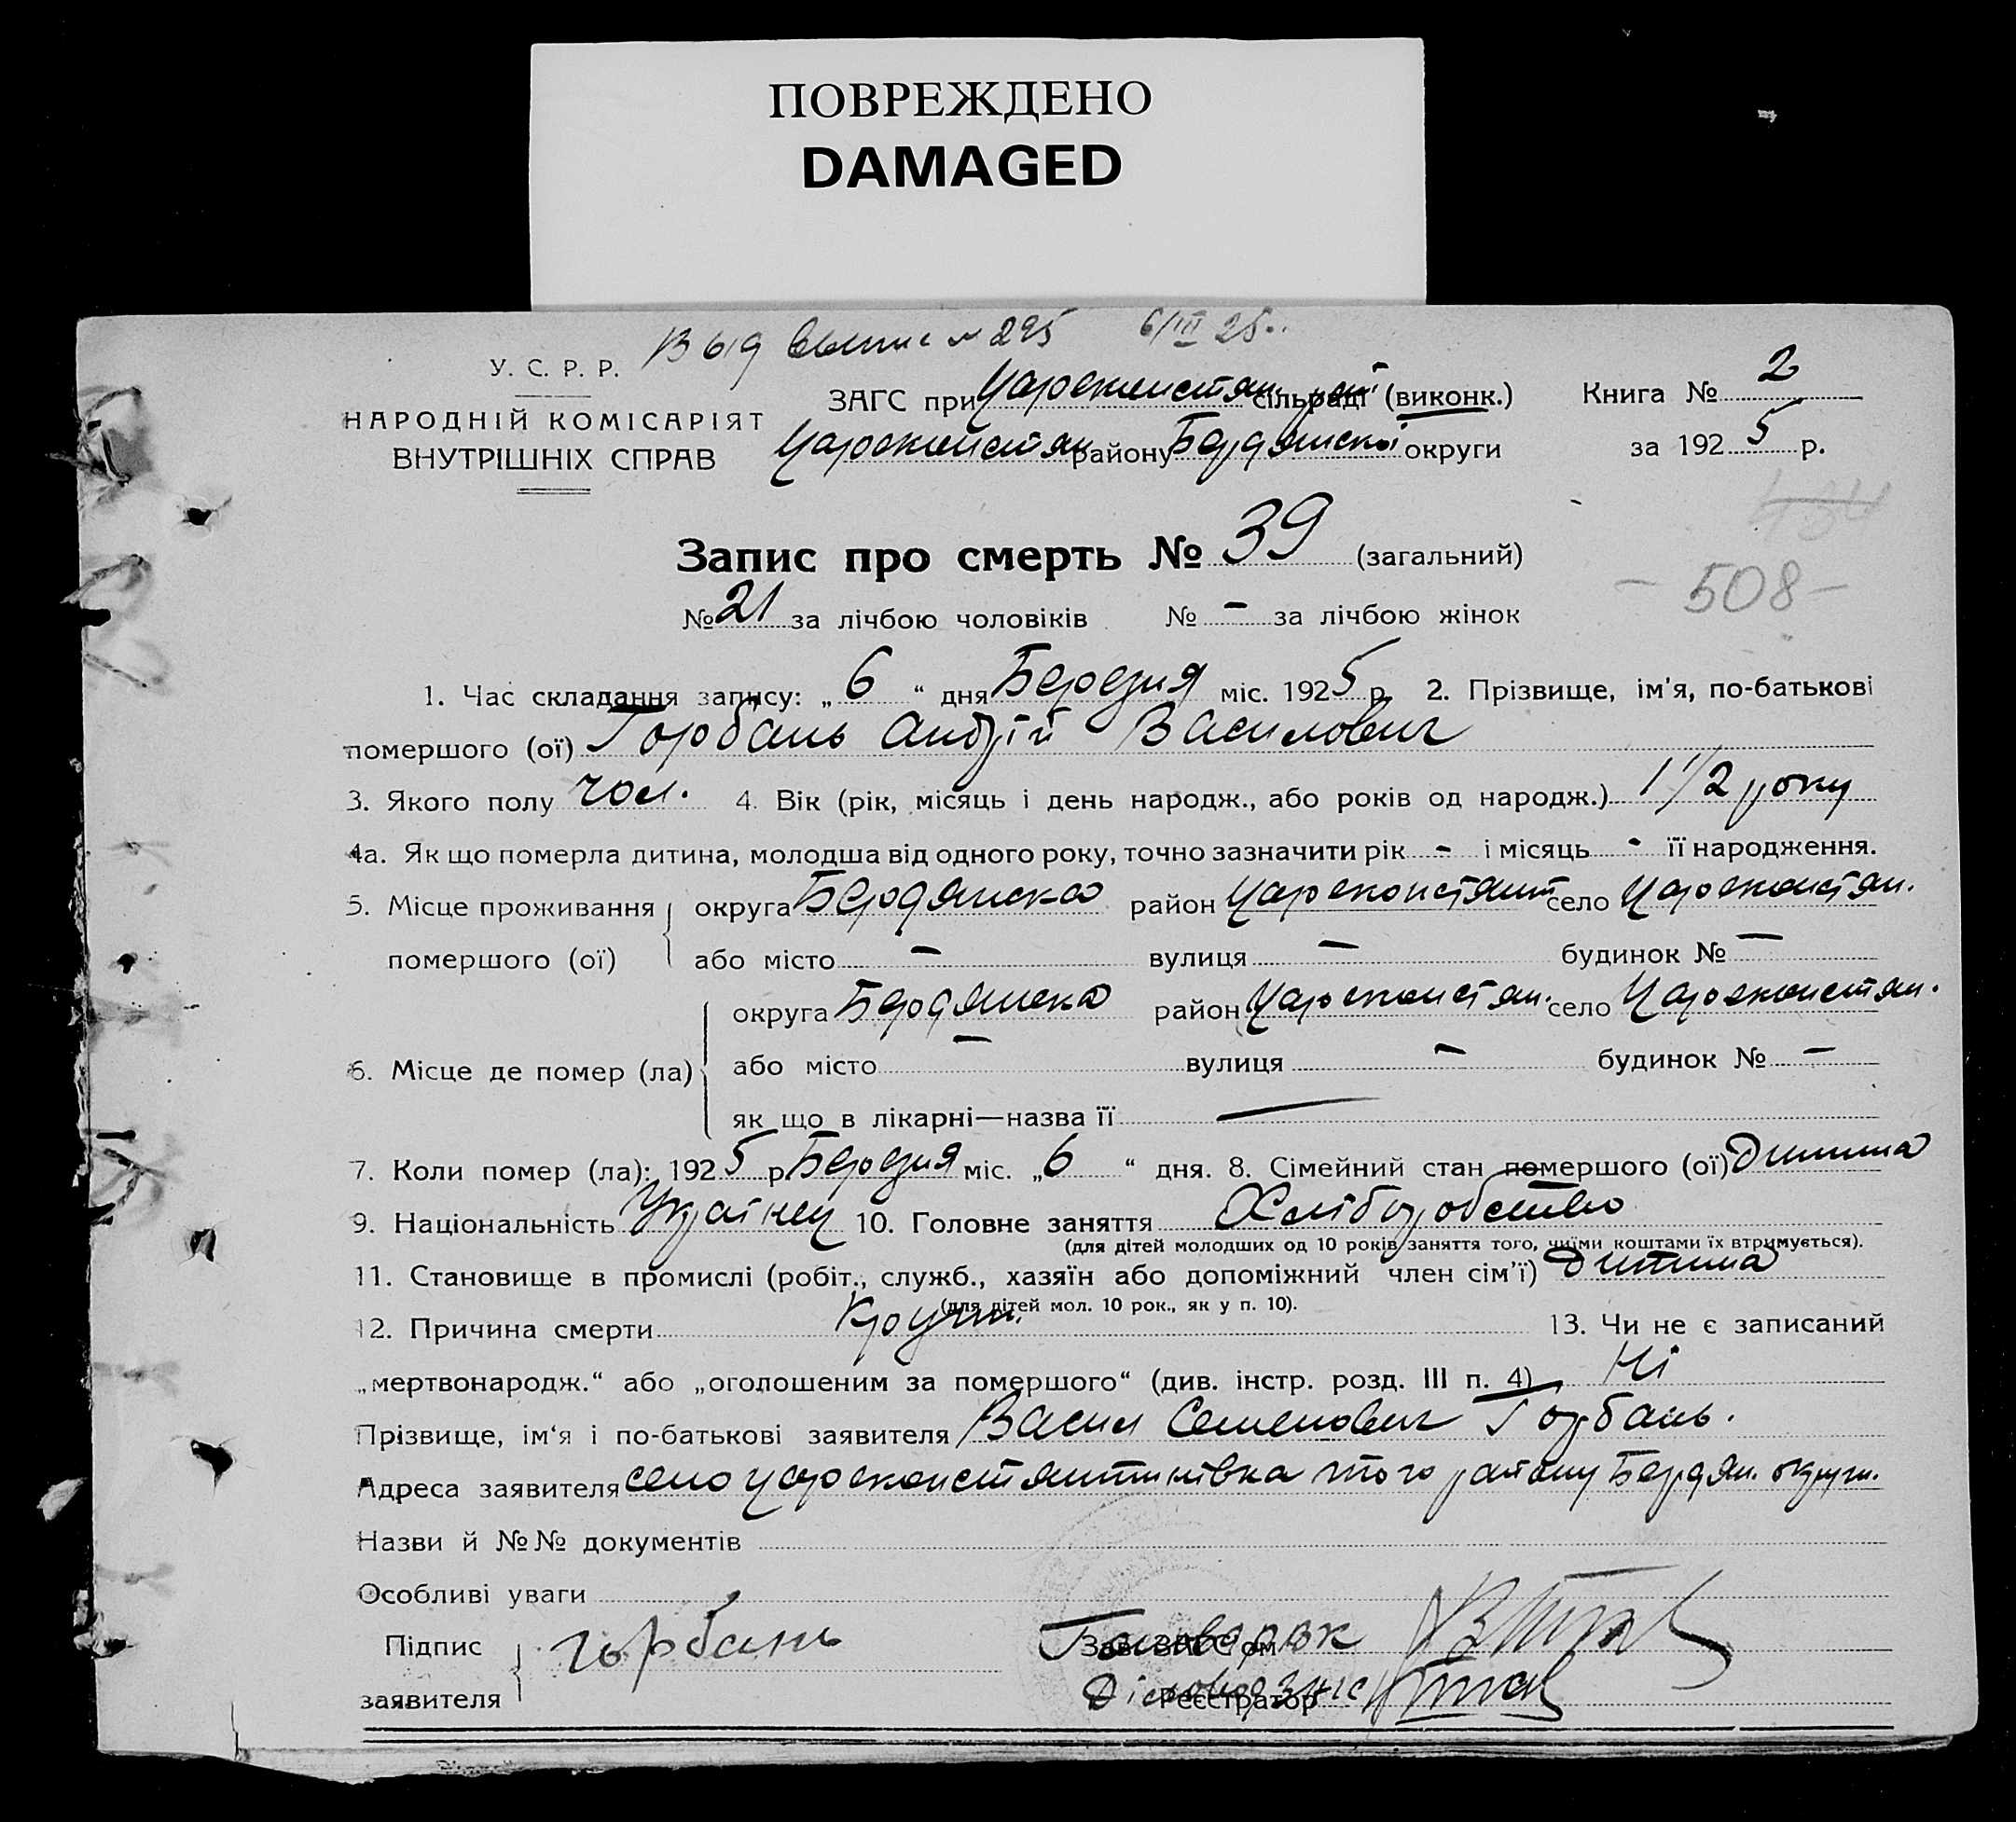 ПОВРЕЖДЕНО
DAMAGED
Выд выпис № 295 6/III 25..
У. С. Р. Р.
НАРОДНІЙ КОМІСАРІЯТ
ВНУТРІШНІХ СПРАВ
ЗАГС при Цароконстян. сільраді (виконк.)
Цароконстян району Бердянскої округи
Книга № 2
за 1925 р.
Запис про смерть № 39 (загальний)
434
- 508 -
№ 21 за лічбою чоловіків № - за лічбою жінок
1. Час складання запису: „ 6 “ дня Березня міс. 1925 р. 2. Прізвище, ім'я, по-батькові
помершого (ої) Горбань Андрій Василович
3. Якого полу чол. 4. Вік (рік, місяць і день народж., або років од народж.) 1 1/2 року
4а. Як що померла дитина, молодша від одного року, точно зазначити рік - і місяць - її народження.
5. Місце проживання помершого (ої)
округа Бердянска район Цароконстянт село Цароконстян.
або місто - вулиця - будинок № -
6. Місце де помер (ла)
округа Бердянска район Цароконстян. село Цароконстян.
або місто - вулиця - будинок № -
як що в лікарні—назва її —
7. Коли помер (ла): 1925 р. Березня міс. „ 6 “ дня. 8. Сімейний стан помершого (ої) Дитина
9. Національність Українец 10. Головне заняття Хліборобство
(для дітей молодших од 10 років заняття того, чиїми коштами їх втримується).
11. Становище в промислі (робіт., служб., хазяїн або допоміжний член сім'ї) Дитина
(для дітей мол. 10 рок., як у п. 10).
12. Причина смерти 13. Чи не є записаний
„мертвонародж.“ або „оголошеним за помершого“ (див. інстр. розд. III п. 4) Ні
Прізвище, ім‘я і по-батькові заявителя Васил Семенович Горбань.
Адреса заявителя село Цароконстянтинівка того району Бердян. округи.
Назви й №№ документів
Особливі уваги
Підпис заявителя Горбань
Зав. ЗАГС'ом
Реєстратор